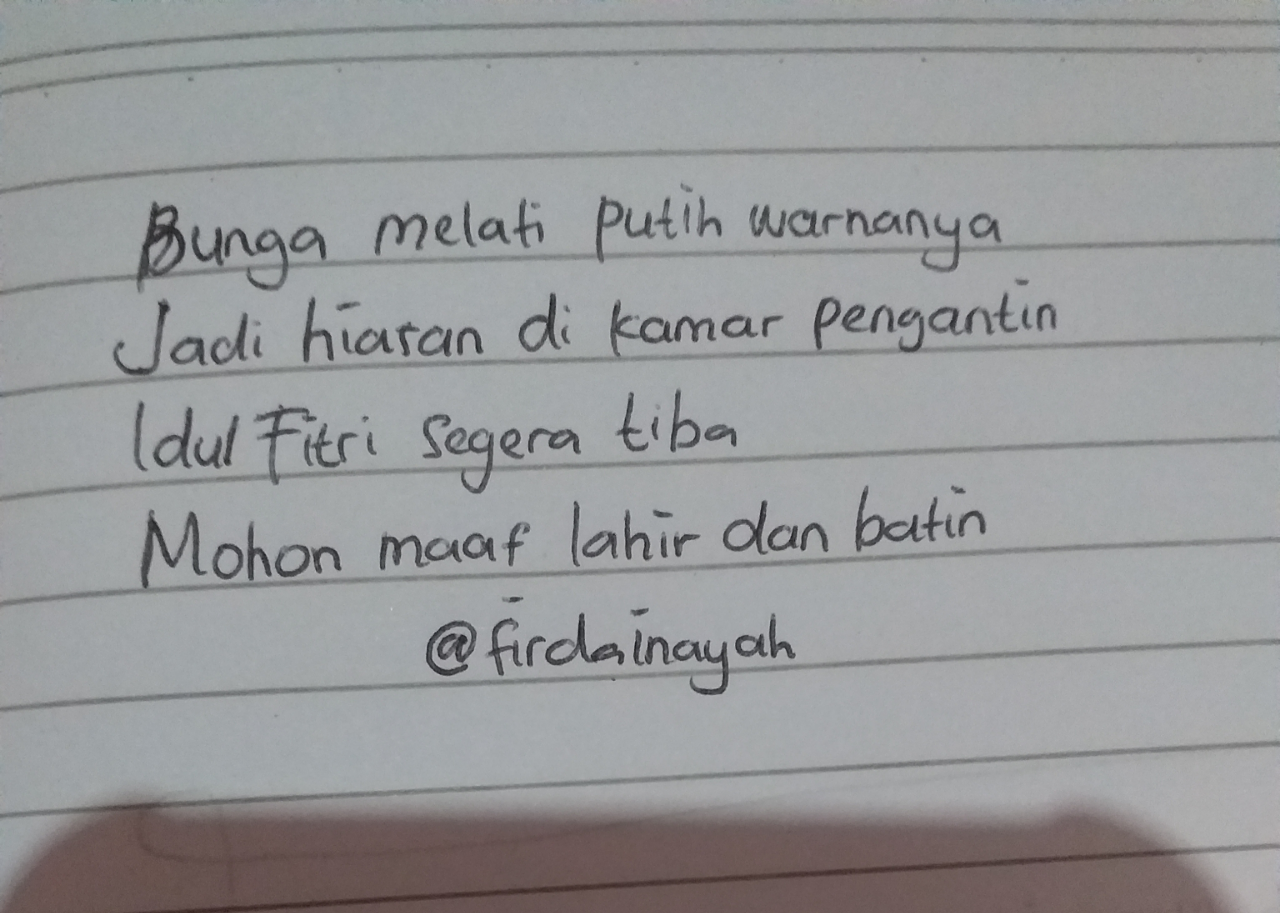 Bunga melati putih warnanya
Jadi hiasan di kamar pengantin
Idul Fitri segera tiba
Mohon maaf lahir dan batin
@firdainayah